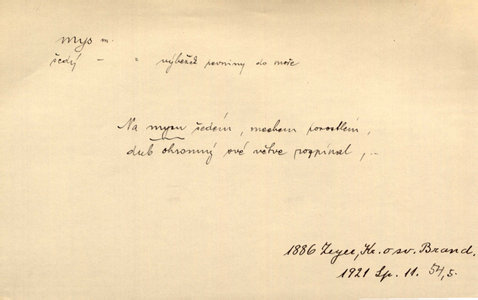 mys m.
šedý – " výběžek pevniny do moře
Na mysu šedém, mechem porostlém,
dub ohromný své větve rozpínal, ..
1886 Zeyer, Kr. o sv. Brand.
1921 Sp. 11. 54,5.